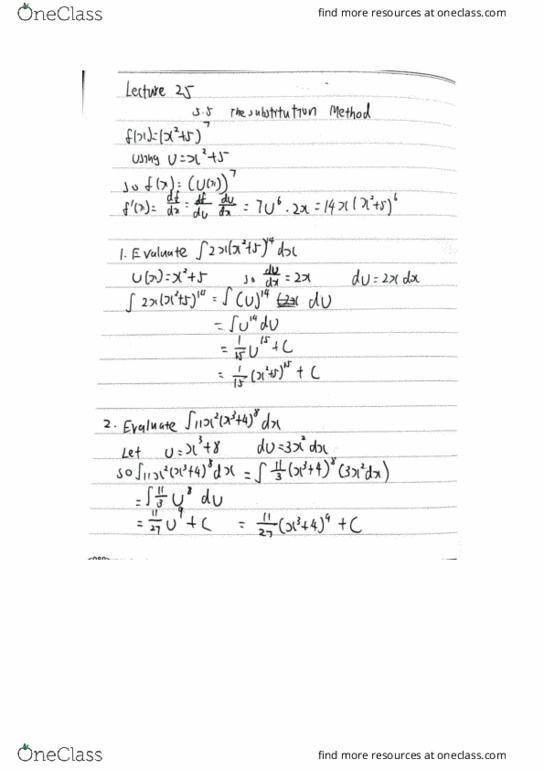 OneClass
find more resources at oneclass.com
Lecture 25
5.5 The substitution Method
f(x)=(x²+5)⁷
using U=x²+5
so f(x)=(U(x))⁷
f'(x)= df/dx = df/dU dU/dx = 7U⁶ · 2x = 14x(x²+5)⁶
1. Evaluate ∫2x(x²+5)¹⁴dx
U(x)=x²+5 so dU/dx = 2x dU=2x dx
∫ 2x(x²+5)¹⁴ = ∫(U)¹⁴ dU
= ∫U¹⁴dU
= 1/15 U¹⁵ + C
= 1/15 (x²+5)¹⁵ + C
2. Evaluate ∫11x²(x³+4)⁸dx
Let U=x³+8 dU=3x²dx
so ∫11x²(x³+4)⁸dx = ∫ 11/3 (x³+4)⁸(3x²dx)
= ∫ 11/3 U⁸ dU
= 11/27 U⁹ + C = 11/27 (x³+4)⁹ + C
OneClass
find more resources at oneclass.com